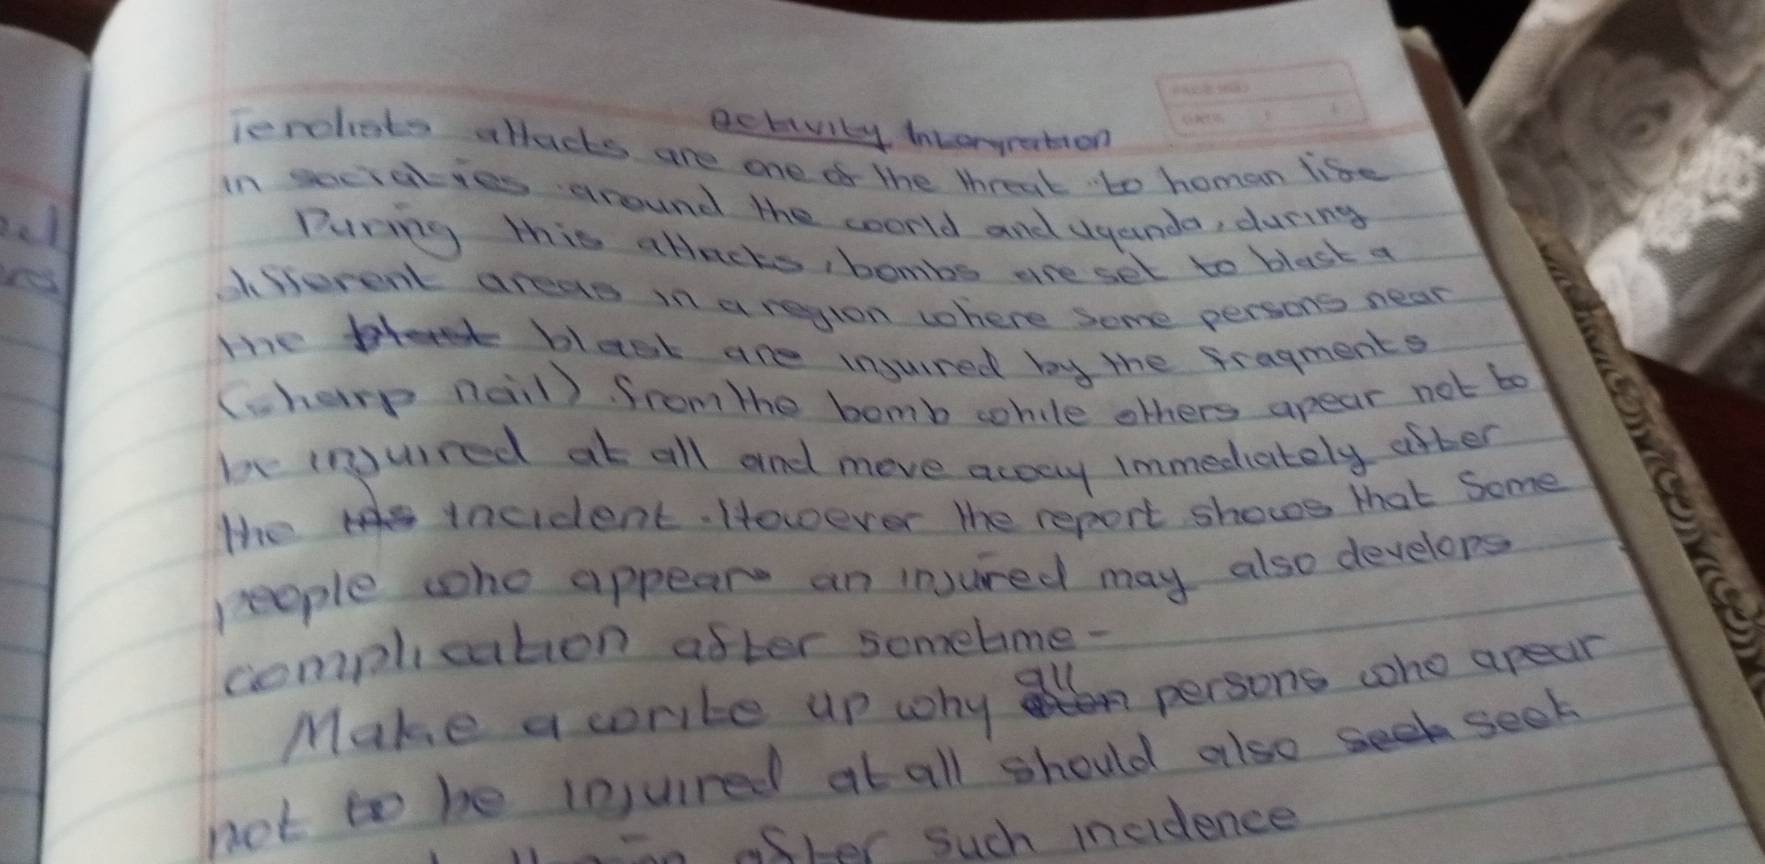 activity Intergration
Terrolists attacks are one of the threat to homan life
in sociaties around the world and uganda, during
During this attacks, bombs are set to blast a
different areas in a region where some persons near
the blast blast are injuired by the fragments
(sharp nail) from the bomb while others apear not to
be injuired at all and move away immediately after
the incident. However the report shows that some
people who appears an injured may also develops
complication after sometime-
Make a write up why all persons who apear
not to be injuired at all should also seek seek
after such incidence